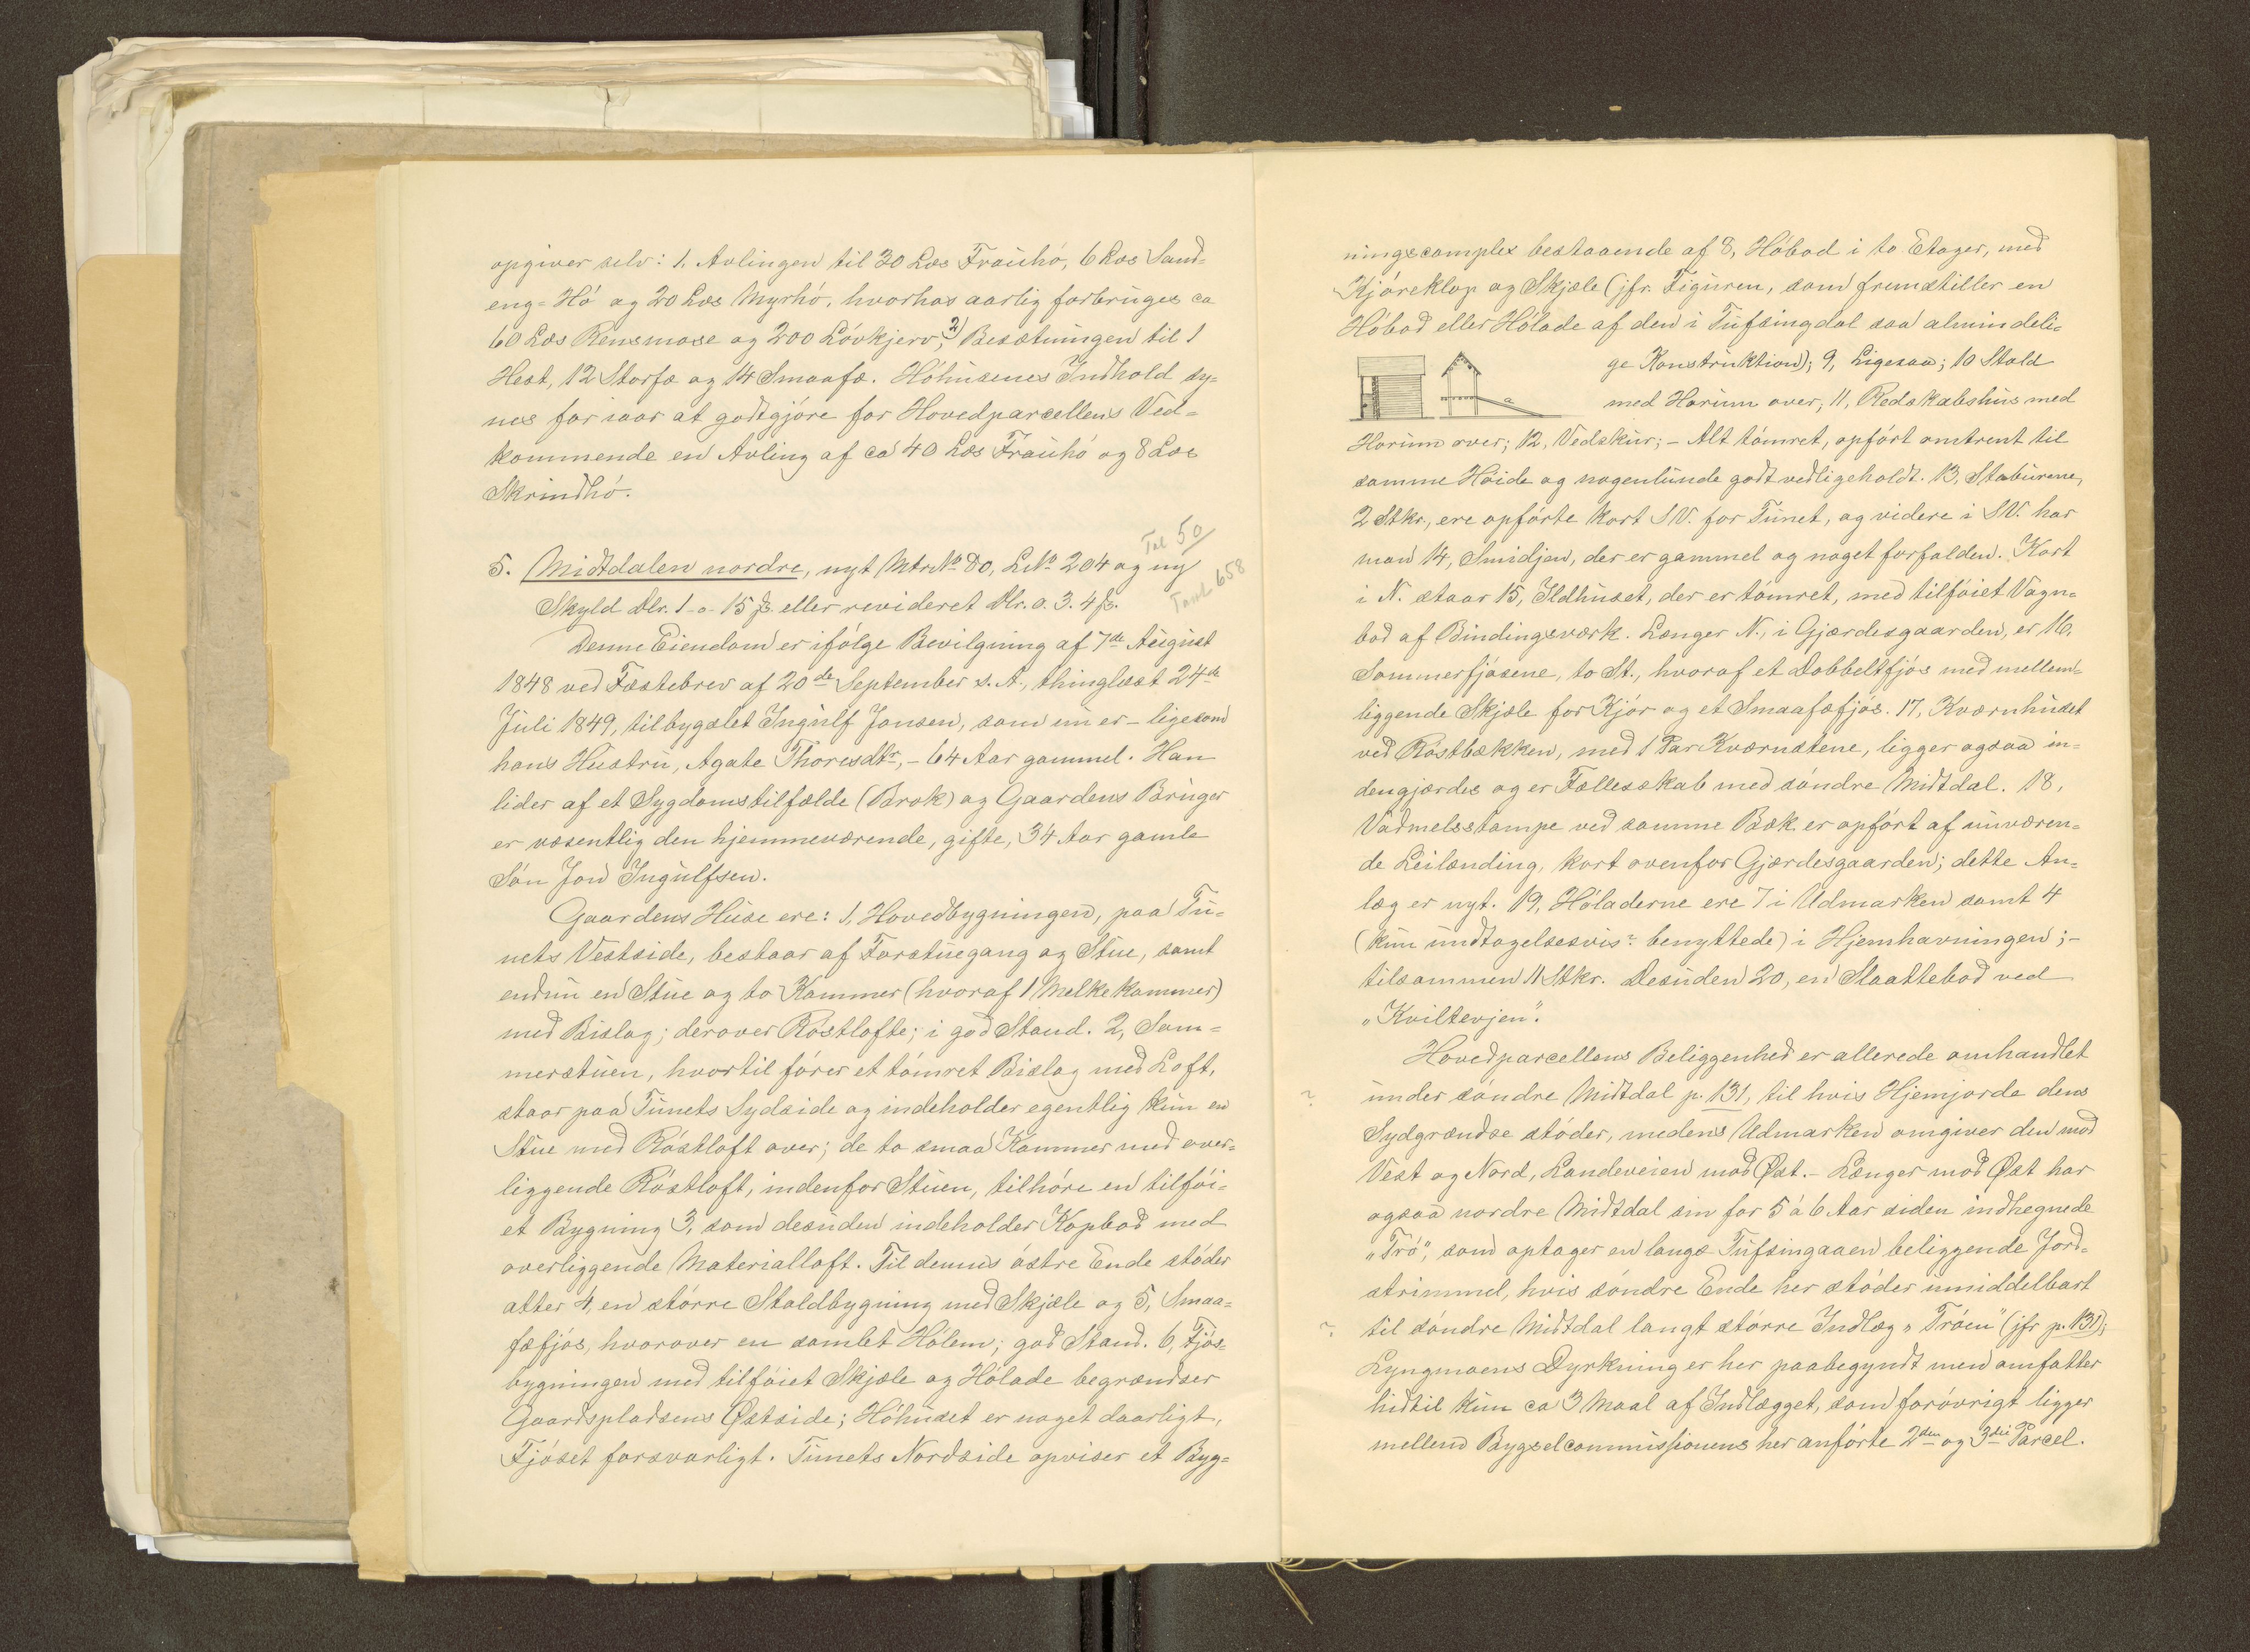 opgiver selv: 1, Avlingen til 30 Læs Frauhö, 6 Læs Sand=
eng=Hö og 20 Læs Myrhö, hvorhos aarlig forbruges ca
60 Læs Rensmose og 200 Lövkjerv, 2) Besætningen til 1
Hest, 12 Storfæ og 14 Smaafæ. Höhusenes Indhold sy=
nes for iaar at godtgjöre for Hovedparcellens Ved=
kommende en Avling af ca 40 Læs Frauhö og 8 Læs
Skrindhö.
Tal 50
5. Midtdalen nordre, nyt Mtr.No 80, LNo 204 og ny
Tamt 658
Skyld Dlr. 1-0-15 ß eller revideret Dlr. 0.3.4 ß.
Denne Eiendom er ifölge Bevilgning af 7de August
1848 ved Fæstebrev af 20de September s. A., thinglæst 24de
Juli 1849, tilbygslet Ingulf Jonsen, som nu er – ligesom
hans Hustru, Agate Thoresdtr, – 64 Aar gammel. Han
lider af et Sygdomstilfælde (Brok) og Gaardens Bruger
er væsentlig den hjemmeværende, gifte, 34 Aar gamle
Sön Jon Ingulfsen.
Gaardens Huse ere: 1, Hovedbygningen, paa Tu=
nets Vestside, bestaar af Forstuegang og Stue, samt
endnu en Stue og to Kammer (hvoraf 1 Melkekammer)
med Bislag; derover Röstlofte; i god Stand. 2, Som=
merstuen, hvortil förer et tömret Bislag med Loft,
staar paa Tunets Sydside og indeholder egentlig kun en
Stue med Röstloft over; de to smaa Kammer med over=
liggende Röstloft, indenfor Stuen, tilhöre en tilföi=
et Bygning 3, som desuden indeholder Kopbod med
overliggende Materialloft. Til dennes östre Ende stöder
atter 4, en större Staldbygning med Skjæle og 5, Smaa=
fæfjös, hvorover en samlet Hölem; god Stand. 6, Fjös=
bygningen med tilföiet Skjæle og Hölade begrændser
Gaardspladsens Østside; Höhuset er noget daarligt,
Fjöset forsvarligt. Tunets Nordside opviser et Byg=
ningscomplex bestaaende af 8, Höbod i to Etager, med
Kjöreklop og Skjæle (jfr. Figuren, som fremstiller en
Höbod eller Hölade af den i Tufsingdal saa almindeli=
ge Konstruktion); 9, Ligesaa; 10 Stald
a
med Horum over; 11, Redskabshus med
Horum over; 12, Vedskur; – Alt tömret, opfört omtrent til
samme Höide og nogenlunde godt vedligeholdt. 13, Staburene,
2 Stkr., ere opförte kort S V. for Tunet, og videre i S V. har
man 14, Smidjen, der er gammel og noget forfalden. Kort
i N. staar 15, Ildhuset, der er tömret, med tilföiet Vogn=
bod af Bindingsværk. Længer N., i Gjærdesgaarden, er 16,
Sommerfjösene, to St., hvoraf et Dobbeltfjös med mellem=
liggende Skjæle for Kjör og et Smaafæfjös. 17, Kværnhuset
ved Röstbækken, med 1 Par Kværnstene, ligger ogsaa in=
dengjærdes og er Fællesskab med söndre Midtdal. 18,
Vadmelsstampe ved samme Bæk er opfört af nuværen=
de Leilænding, kort ovenfor Gjærdesgaarden; dette An=
læg er nyt. 19, Höladerne ere 7 i Udmarken samt 4
(kun undtagelsesvis benyttede) i Hjemhavningen; –
tilsammen 11 Stkr. Desuden 20, en Slaattebod ved
„Kviltevjen“.
Hovedparcellens Beliggenhed er allerede omhandlet
? under söndre Midtdal p. 131, til hvis Hjemjorde dens
Sydgrændse stöder, medens Udmarken omgiver den mod
Vest og Nord, Landeveien mod Øst. – Længer mod Øst har
ogsaa nordre Midtdal sin for 5 á 6 Aar siden indhegnede
„Trö“, som optager en langs Tufsingaaen beliggende Jord=
strimmel, hvis söndre Ende her stöder umiddelbart
? til söndre Midtdal langt större Indlæg „Tröen“ (jfr p. 131);
Lyngmoens Dyrkning er her paabegyndt men omfatter
hidtil kun ca 3 Maal af Indlægget, som forövrigt ligger
mellem Bygselcommissionens her anförte 2den og 3die Parcel.